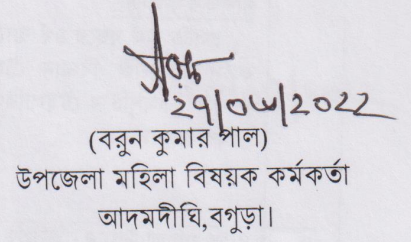 ২৭/০৬/২০২২
(বরুন কুমার পাল)
উপজেলা মহিলা বিষয়ক কর্মকর্তা
আদমদীঘি,বগুড়া।